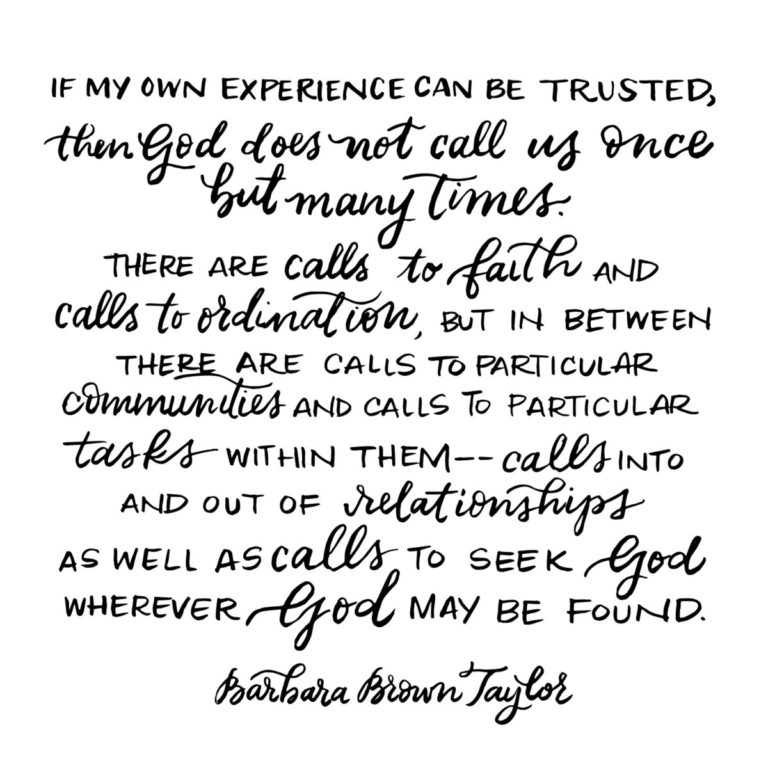 IF MY OWN EXPERIENCE CAN BE TRUSTED,
then God does not call us once
but many times.
THERE ARE calls to faith AND
calls to ordination, BUT IN BETWEEN
THERE ARE CALLS TO PARTICULAR
communities AND CALLS TO PARTICULAR
tasks WITHIN THEM--calls INTO
AND OUT OF relationships
AS WELL AS calls TO SEEK God
WHEREVER God MAY BE FOUND.
Barbara Brown Taylor